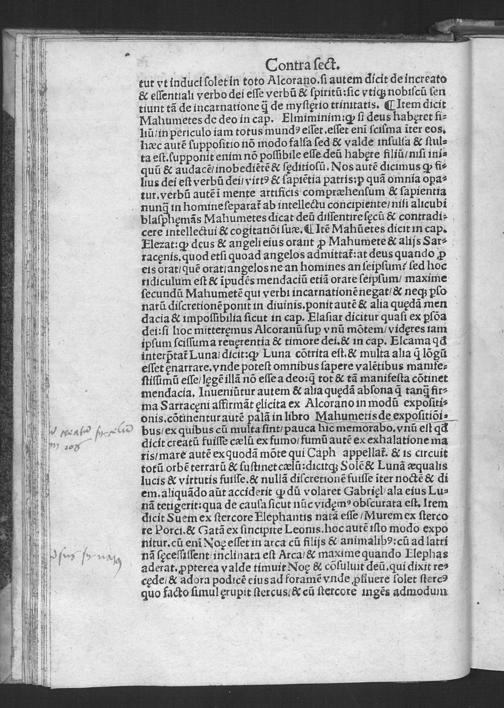 Contra sect.
tur vt induci solet in toto Alcorano. si autem dicit de increato
& essentiali verbo dei esse verbũ & spiritũ: sic vtiqꝫ nobiscũ sen
tiunt tã de incarnatione q̃ de mysterio trinitatis. ¶ Item dicit
Mahumetes de deo in cap. Elmiminim: ꝙ si deus haberet fi-
liũ/in periculo iam totus mundꝰ esset. esset eni scisma iter eos.
hæc autẽ suppositio nõ modo falsa sed & valde insulsa & stul-
ta est. supponit enim nõ possibile esse deũ habere filiũ/nisi ini-
quũ & audacẽ/inobediẽtẽ & seditiosũ. Nos autẽ dicimus ꝙ fi-
lius dei est verbũ dei/virtꝰ & sapiẽtia patris: ꝑ quã omnia opa-
tur. verbũ autẽ ĩ mente artificis compræhensum & sapientia
nunq̃ in homine separat᷑ ab intellectu concipiente/nisi alicubi
blasphemãs Mahumetes dicat deũ dissentire secũ & contradi-
cere intellectui & cogitationi suæ. ¶ Itẽ Mahũetes dicit in cap.
Elezat: ꝙ deus & angeli eius orant ꝓ Mahumete & alijs Sar-
racenis. quod etsi quoad angelos admittat᷑: at deus quando ꝓ
eis orat/quẽ orat/angelos ne an homines an seipsum? sed hoc
ridiculum est & ĩpudẽs mendaciũ etiã orare seipsum/maxime
secundũ Mahumetẽ qui verbi incarnationẽ negat/& neqꝫ pso
narũ discretionẽ ponit in diuinis. ponit autẽ & alia quedã men
dacia & impossibilia sicut in cap. Elasiar dicitur quasi ex psõa
dei: si hoc mitteremus Alcoranũ sup vnũ mõtem/videres iam
ipsum scissum a reuerentia & timore dei. & in cap. Elcama qđ
interp̃tat᷑ Luna/dicit: ꝙ Luna cõtrita est. & multa alia q̃ lõgũ
esset enarrare. vnde potest omnibus sapere valẽtibus manife-
stissimũ esse/legẽ illã nõ esse a deo: q̃ tot & tã manifesta cõtinet
mendacia. Inueniũtur autem & alia quedã absona q̃ tanq̃ fir-
ma Sarraceni affirmãt elicita ex Alcorano in modũ expositi-
onis. cõtinentur autẽ palã in libro Mahumetis de expositiõi-
bus/ex quibus cũ multa sint/pauca hic memorabo. vnũ est qđ
dicit creatũ fuisse cælũ ex fumo/fumũ autẽ ex exhalatione ma
ris/mare autẽ ex quodã mõte qui Caph appellat᷑. & is circuit
totũ orbẽ terrarũ & sustinet cælũ: dicitqꝫ Solẽ & Lunã æqualis
lucis & virtutis fuisse. & nullã discretionẽ fuisse iter noctẽ & di
em. aliquãdo aũt acciderit ꝙ dũ volaret Gabriel/ala eius Lu-
nã tetigerit: qua de causa sicut nũc videmꝰ obscurata est. Item
dicit Suem ex stercore Elephantis natã esse/Murem ex sterco
re Porci. & Gatã ex sincipite Leonis. hoc autẽ isto modo expo
nitur. cũ eni Noe esset in arca cũ filijs & animalibꝰ: cũ ad latri
nã secessissent: inclinata est Arca/& maxime quando Elephas
aderat. ꝓpterea valde timuit Noe & cõsuluit deũ. qui dixit re-
cede/& adora podicẽ eius ad foramẽ vnde ꝓfluere solet stercꝰ
quo facto simul erupit stercus/& cũ stercore ingẽs admodum